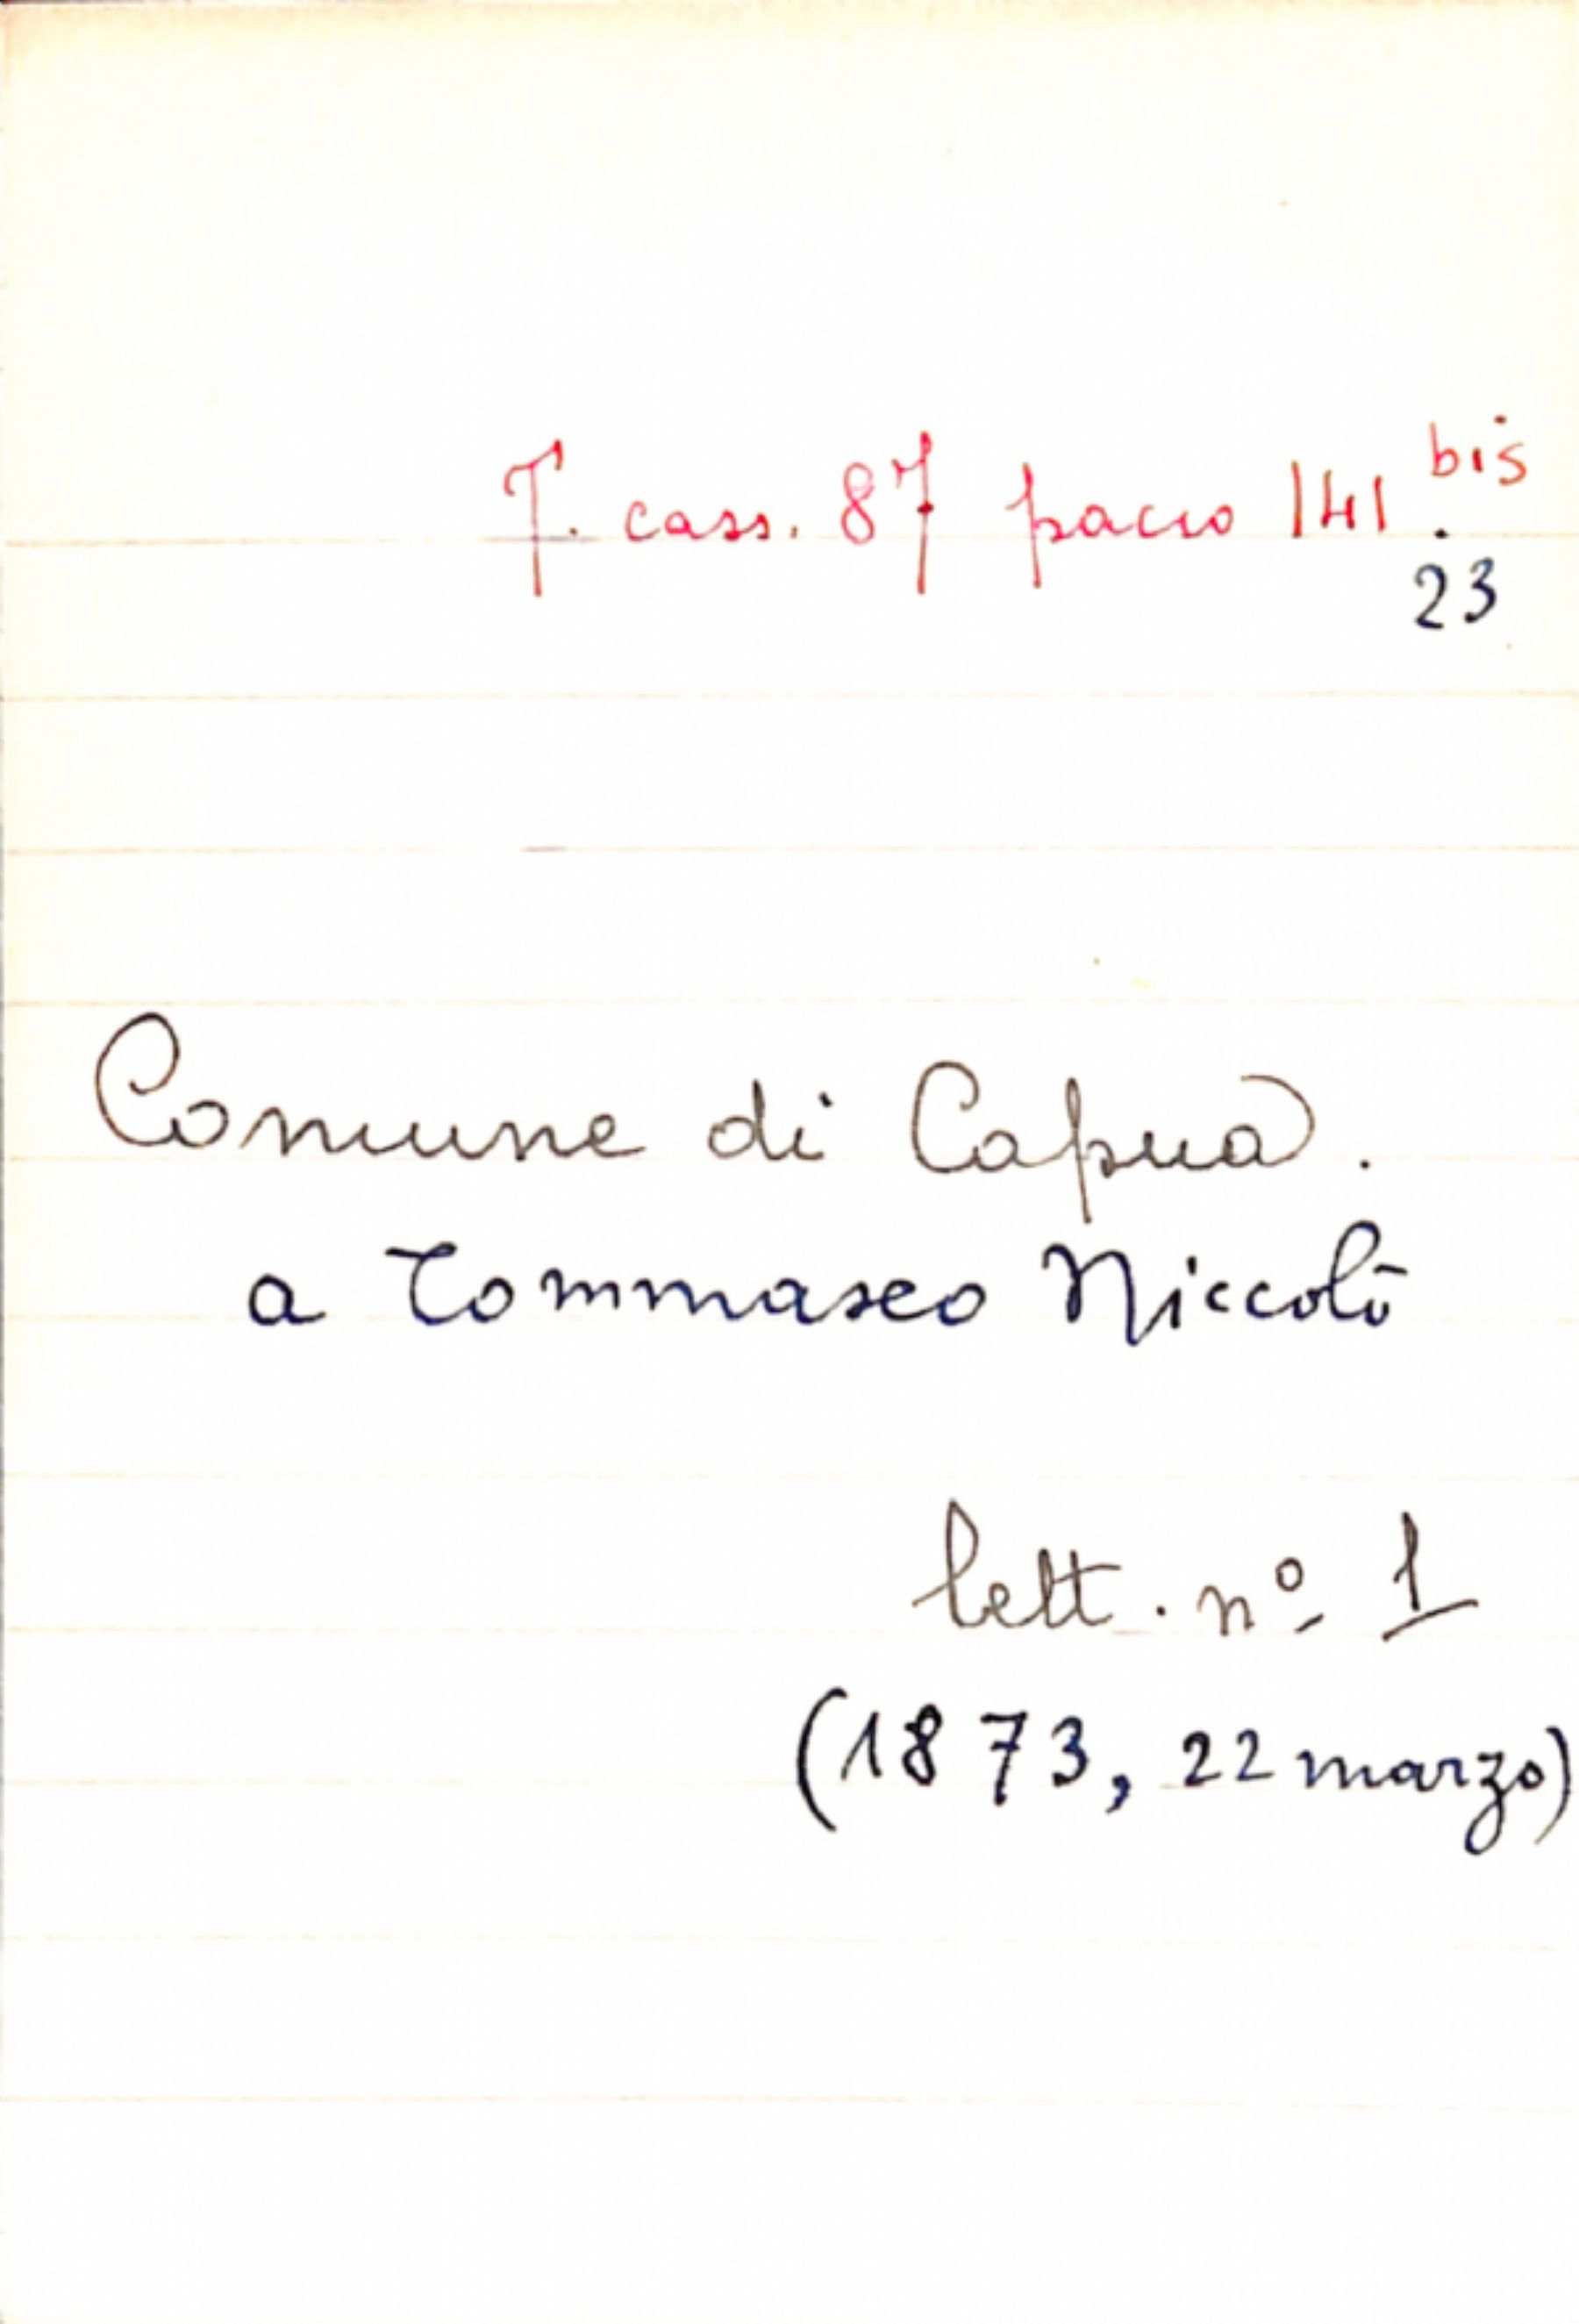 T. cass. 87 pacco 141 bis.
23
Comune di Capua.
a Tommaseo Niccolò
lett. nº 1
(1873, 22 marzo)